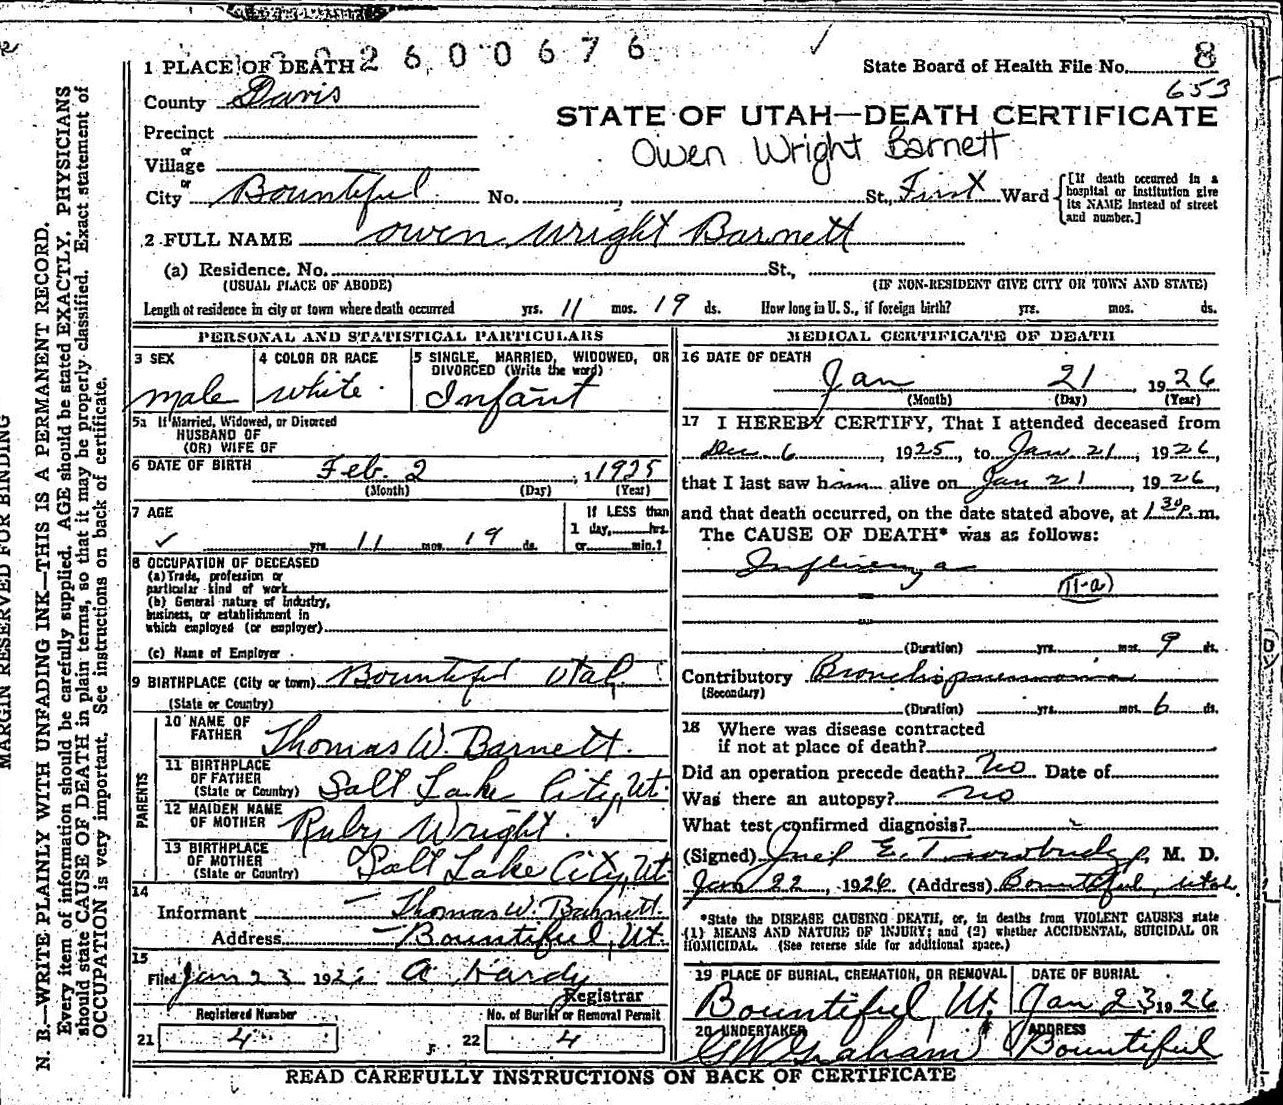 2600676
8
1 PLACE OF DEATH
State Board of Health File No.
653
County Davis
STATE OF UTAH—DEATH CERTIFICATE
Precinct
Owen Wright Barnett
or
Village
or
City Bountiful No. , St., First Ward
[If death occurred in a hospital or institution give its NAME instead of street and number.]
2 FULL NAME Owen Wright Barnett
(a) Residence. No. St.,
(USUAL PLACE OF ABODE) (IF NON-RESIDENT GIVE CITY OR TOWN AND STATE)
Length of residence in city or town where death occurred yrs. 11 mos. 19 ds. How long in U. S., if foreign birth? yrs. mos. ds.
PERSONAL AND STATISTICAL PARTICULARS
3 SEX
male
4 COLOR OR RACE
white
5 SINGLE, MARRIED, WIDOWED, OR
DIVORCED (Write the word)
Infant
5a If Married, Widowed, or Divorced
HUSBAND OF
(OR) WIFE OF
6 DATE OF BIRTH Feb. 2, 1925
(Month) (Day) (Year)
7 AGE
yrs. 11 mos. 19 ds.
If LESS than
1 day, hrs.
or min.?
8 OCCUPATION OF DECEASED
(a) Trade, profession or
particular kind of work
(b) General nature of Industry,
business, or establishment in
which employed (or employer)
(c) Name of Employer
9 BIRTHPLACE (City or town) Bountiful Utah
(State or Country)
PARENTS
10 NAME OF
FATHER Thomas W. Barnett.
11 BIRTHPLACE
OF FATHER
(State or Country) Salt Lake City, Ut.
12 MAIDEN NAME
OF MOTHER Ruby Wright.
13 BIRTHPLACE
OF MOTHER
(State or Country) Salt Lake City, Ut
14
Informant Thomas W. Barnett.
Address Bountiful, Ut.
15
Filed Jan 23 192 A Hardy
Registrar
Registered Number
21 4
No. of Burial or Removal Permit
22 4
MEDICAL CERTIFICATE OF DEATH
16 DATE OF DEATH
Jan 21, 1926
(Month) (Day) (Year)
17 I HEREBY CERTIFY, That I attended deceased from
Dec 6, 1925, to Jan 21, 1926,
that I last saw him alive on Jan 21, 1926,
and that death occurred, on the date stated above, at 1 30 P. m.
The CAUSE OF DEATH* was as follows:
Influenza
11-a
(Duration) yrs. mos. 9 ds.
Contributory Bronchopneumonia
(Secondary)
(Duration) yrs. mos. 6 ds.
18 Where was disease contracted
if not at place of death?
Did an operation precede death? No Date of
Was there an autopsy? no
What test confirmed diagnosis?
(Signed) E. Trowbridge, M. D.
Jan 22, 1926 (Address) Bountiful, Utah.
*State the DISEASE CAUSING DEATH, or, in deaths from VIOLENT CAUSES state
(1) MEANS AND NATURE OF INJURY; and (2) whether ACCIDENTAL, SUICIDAL OR
HOMICIDAL. (See reverse side for additional space.)
19 PLACE OF BURIAL, CREMATION, OR REMOVAL
Bountiful, Ut.
DATE OF BURIAL
Jan 23 1926
20 UNDERTAKER
Graham
ADDRESS
Bountiful
READ CAREFULLY INSTRUCTIONS ON BACK OF CERTIFICATE
MARGIN RESERVED FOR BINDING
N. B.—WRITE PLAINLY WITH UNFADING INK—THIS IS A PERMANENT RECORD.
Every item of information should be carefully supplied. AGE should be stated EXACTLY, PHYSICIANS
should state CAUSE OF DEATH in plain terms, so that it may be properly classified. Exact statement of
OCCUPATION is very important. See instructions on back of certificate.